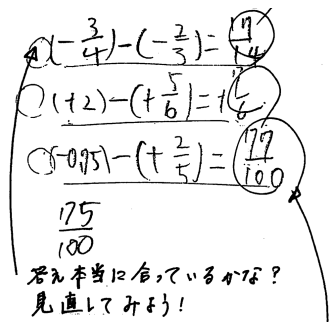 (-3/4)-(-2/3)=17/14
(+2)-(+5/6)=+1/6
(-0.75)-(+2/5)=77/100
175/100
答え本当に合っているかな?
見直してみよう!